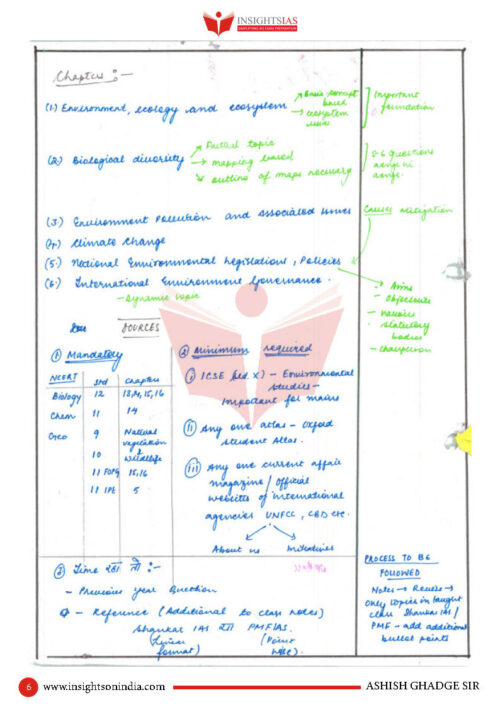 INSIGHTSIAS
SIMPLIFYING IAS EXAM PREPARATION
Chapters :-
(1.) Environment, ecology and ecosystem
→ Basic concept
based
→ ecosystem
Important
foundation
(2.) Biological diversity
→ Factual topic
→ mapping based
outline of maps necessary
5-6 Questions
(3.) Environment Pollution and Associated Issues
Causes Mitigation
(4.) Climate Change
(5.) National Environmental Legislations, Policies
(6.) International Environment Governance.
- Dynamic topic
→ Aims
- Objectives
- Statutory
bodies
- Chairperson
SOURCES
① Mandatory
NCERT Std Chapters
Biology 12 13,14,15,16
Chem 11 14
Geo 9 Natural
vegetation
10 & Wildlife
11 FOPG 15,16
11 IPE 5
② Minimum required
(i) ICSE (std. X) - Environmental
Studies -
Important for mains
(ii) Any one atlas - Oxford
Student Atlas.
(iii) Any one current affair
magazine / Official
websites of international
agencies UNFCC, CBD etc.
About us Initiatives
③ Time रहा तो :-
- Previous year Question
- Reference (Additional to class notes)
Shankar IAS या PMFIAS.
format) (Point
wise)
PROCESS TO BE
FOLLOWED
Notes → Revise →
Only topics in taught
class Shankar IAS /
PMF - add additional
bullet points
6 www.insightsonindia.com ASHISH GHADGE SIR